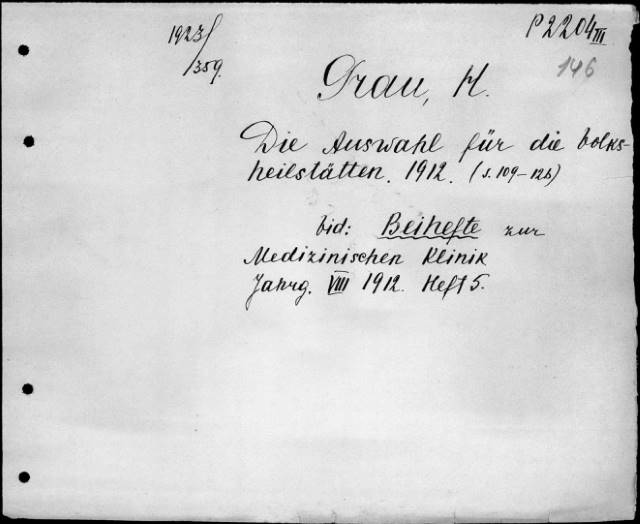 1923/359.
P 2204 III
146
Grau, H.
Die Auswahl für die Volks-
heilstätten. 1912. (S. 109-126)
bid: Beihefte zur
Medizinischen Klinik
Jahrg. VIII 1912. Heft 5.